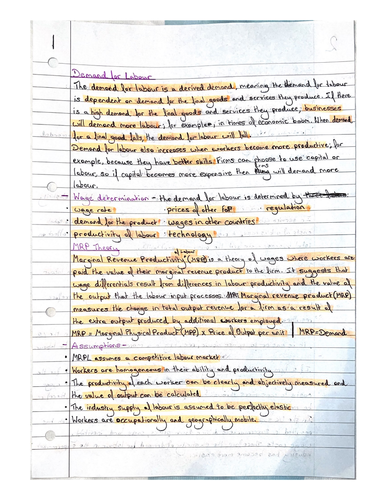 1
Demand for Labour
The demand for labour is a derived demand, meaning the demand for labour
is dependent on demand for the final goods and services they produce. If there
is a high demand for the final goods and services they produce, businesses
will demand more labour; for example, in times of economic boom. When demand
for a final good falls, the demand for labour will fall.
Demand for labour also increases when workers become more productive; for
example, because they have better skills. Firms can choose to use capital or
labour, so if capital becomes more expensive then firms will demand more
labour.
- Wage determination - the demand for labour is determined by
· wage rate · prices of other FoP · regulation
· demand for the product · wages in other countries
· productivity of labour · technology
MRP Theory
Marginal Revenue Productivity of labour (MRP) is a theory of wages where workers are
paid the value of their marginal revenue product to the firm. It suggests that
wage differentials result from differences in labour productivity and the value of
the output that the labour input processes. Marginal revenue product (MRP)
measures the change in total output revenue for a firm as a result of
the extra output produced by additional workers employed.
MRP = Marginal Physical Product (MPP) x Price of Output per unit | MRP=Demand
- Assumptions -
· MRPL assumes a competitive labour market
· Workers are homogeneous in their ability and productivity
· The productivity of each worker can be clearly and objectively measured and
the value of output can be calculated
· The industry supply of labour is assumed to be perfectly elastic
· Workers are occupationally and geographically mobile.